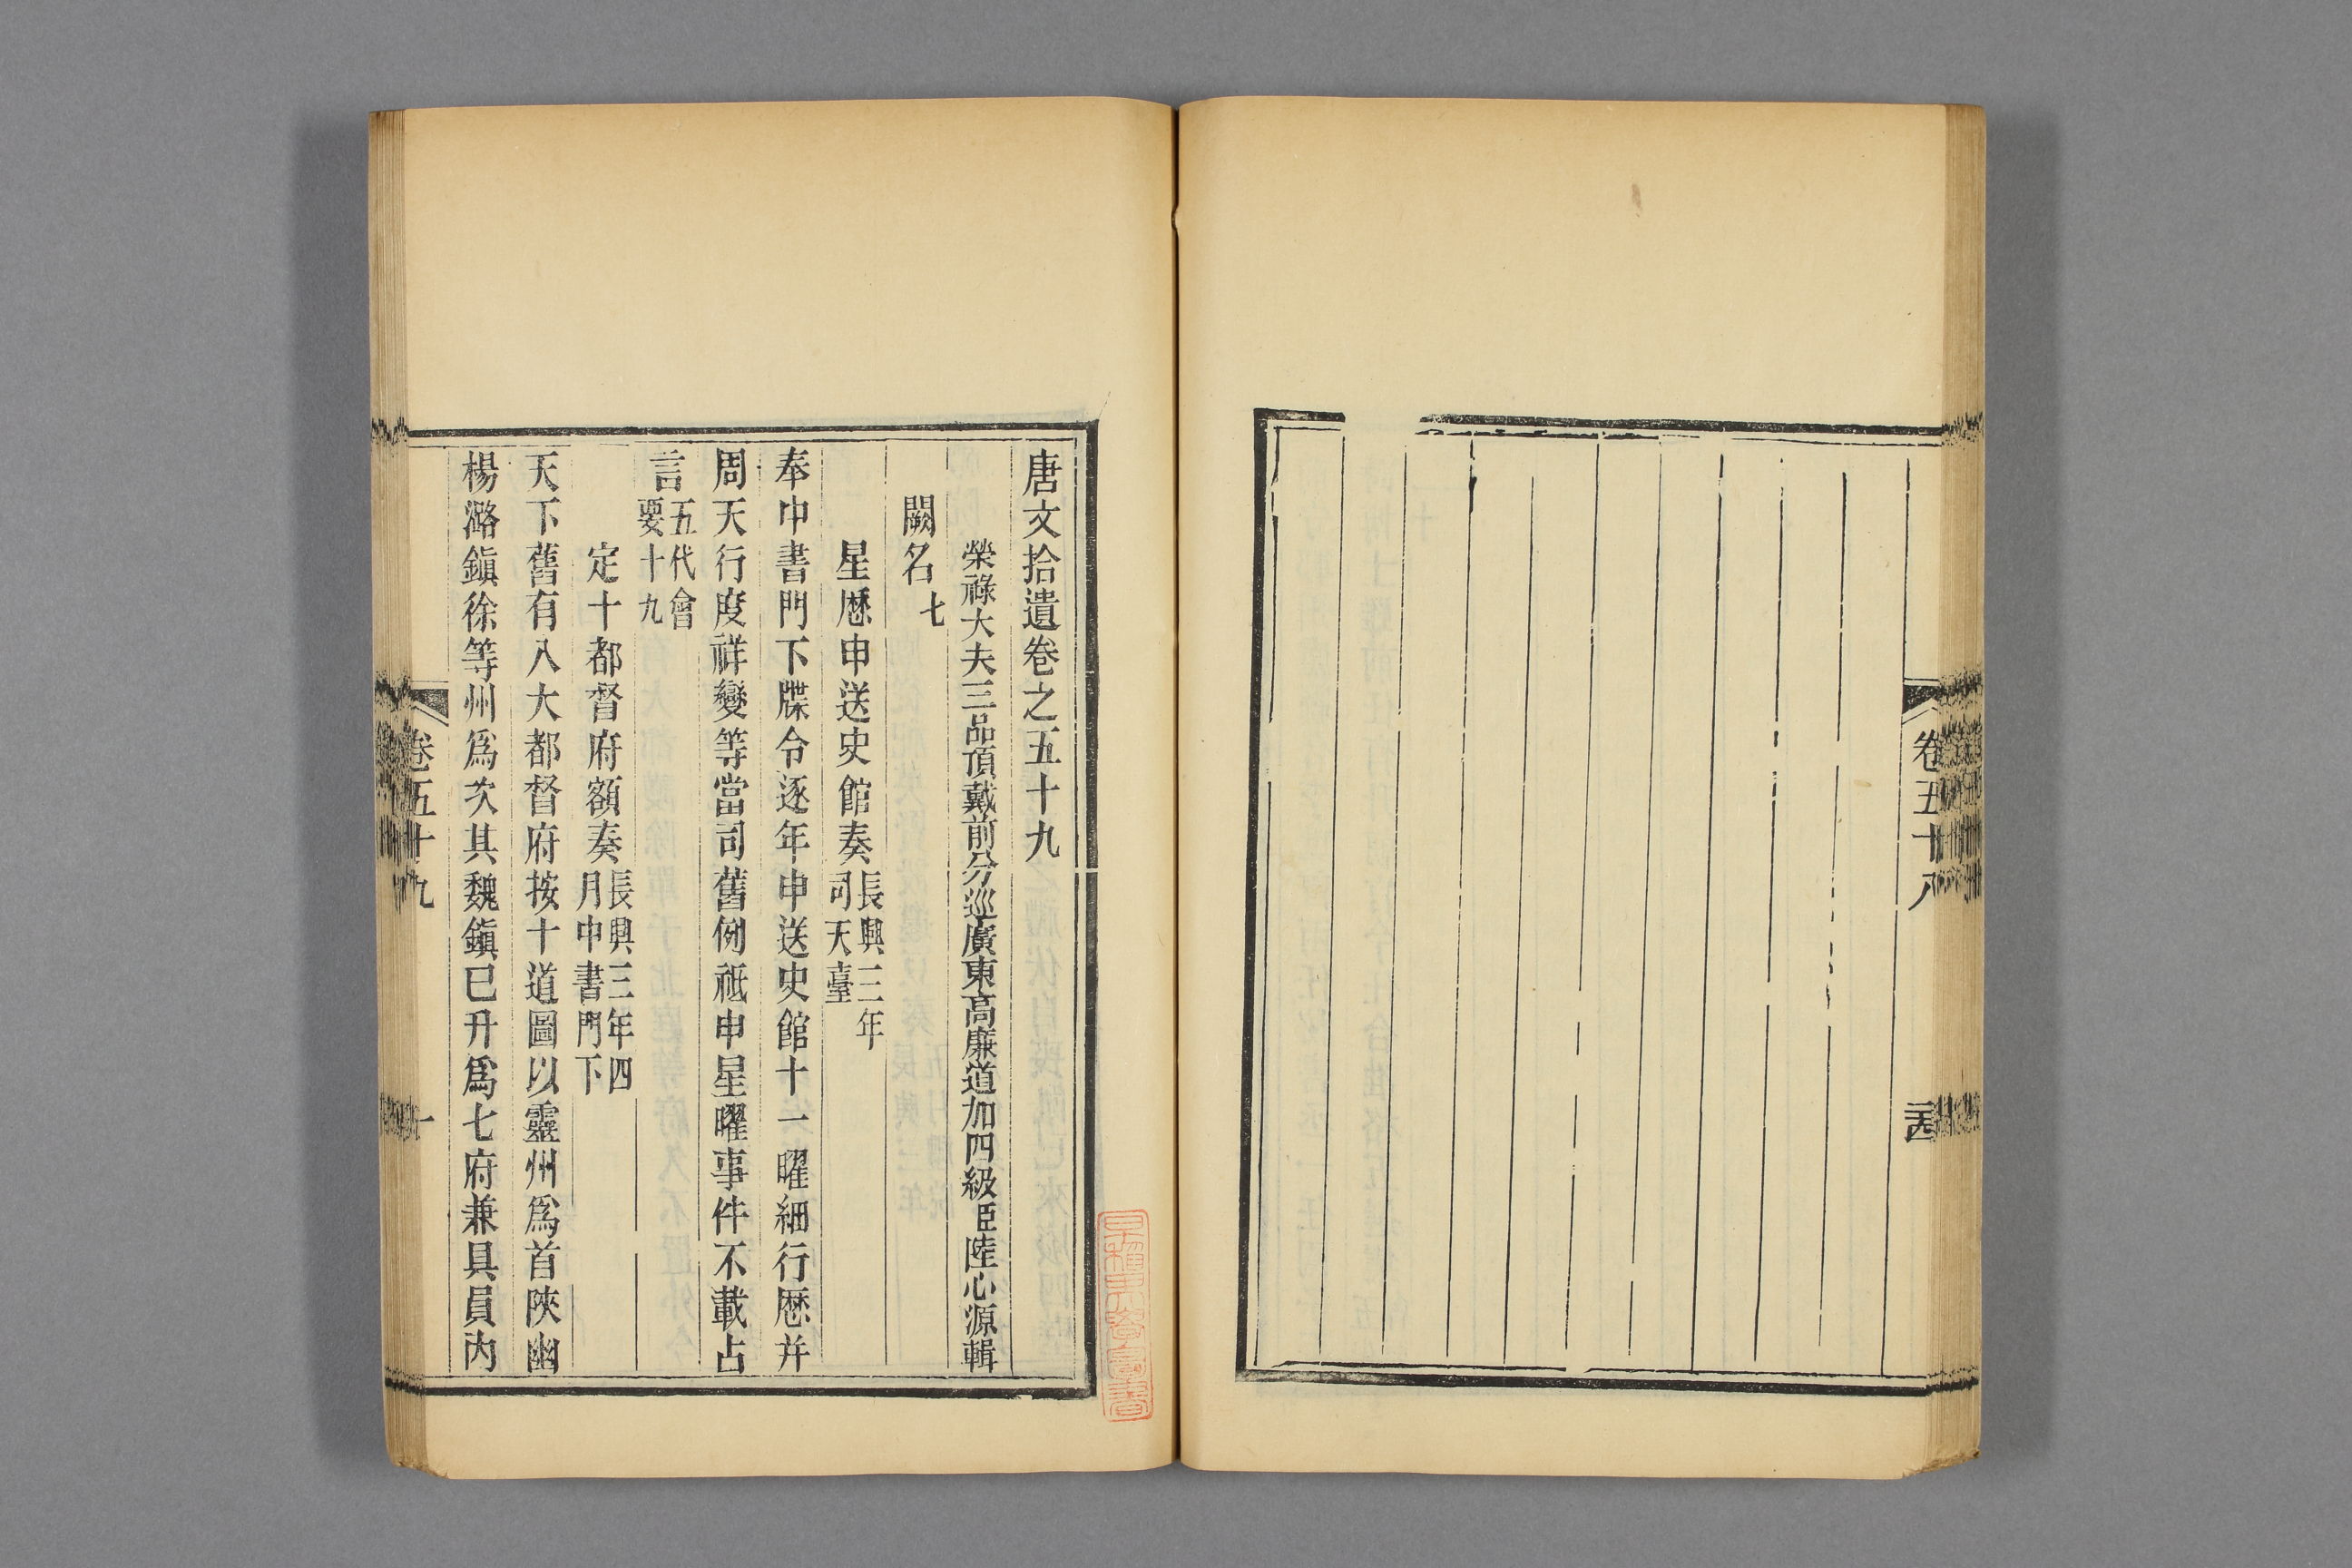 卷五十八
唐文拾遺卷之五十九
榮祿大夫三品頂戴前分巡廣東高廉道加四級臣陸心源輯
闕名七
星厯申送史館奏長興二年司天臺
奉中書門下牒令逐年申送史館十一曜細行厯并
周天行度祥變等當司舊例祗申星曜事件不載占
言五代會要十九
定十都督府額奏長興三年四月中書門下
天下舊有八大都督府按十道圖以靈州爲首陝幽
楊潞鎭徐等州爲次其魏鎭已升爲七府兼具員内
卷五十九
一